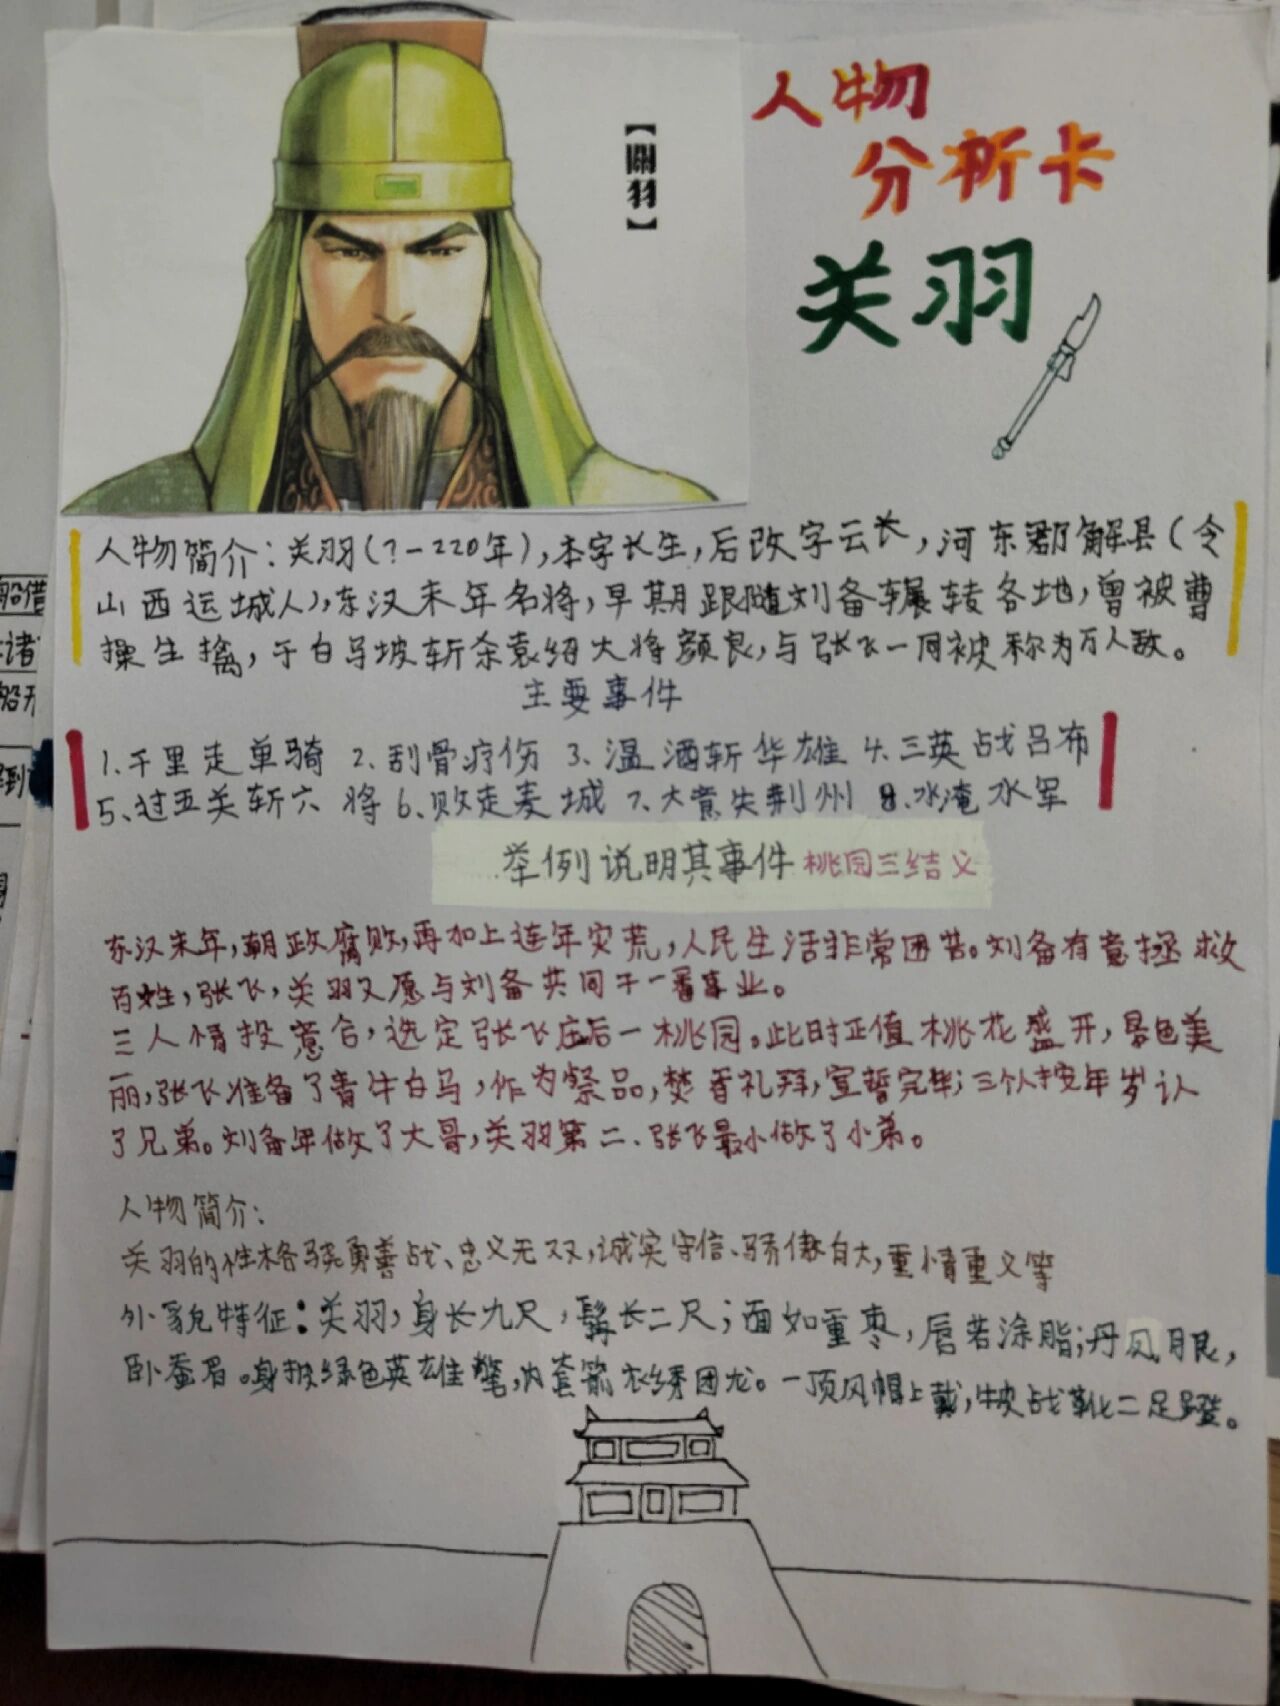 【關羽】
人物
分析卡
关羽
人物简介：关羽（？-220年），本字长生，后改字云长，河东郡解县（令
山西运城人），东汉末年名将，早期跟随刘备辗转各地，曾被曹
操生擒，于白马坡斩杀袁绍大将颜良，与张飞一同被称为万人敌。
主要事件
1.千里走单骑 2.刮骨疗伤 3.温酒斩华雄 4.三英战吕布
5.过五关斩六将 6.败走麦城 7.大意失荆州 8.水淹水军
举例说明其事件 桃园三结义
东汉末年，朝政腐败，再加上连年灾荒，人民生活非常困苦。刘备有意拯救
百姓，张飞，关羽又愿与刘备共同干一番事业。
三人情投意合，选定张飞庄后一桃园。此时正值桃花盛开，景色美
丽，张飞准备了青牛白马，作为祭品，焚香礼拜，宣誓完毕；三个人按年岁认
了兄弟。刘备年做了大哥，关羽第二、张飞最小做了小弟。
人物简介：
关羽的性格骁勇善战、忠义无双，诚实守信、骄傲自大，重情重义等
外貌特征：关羽，身长九尺，髯长二尺；面如重枣，唇若涂脂；丹凤眼，
卧蚕眉。身披绿色英雄氅，内套箭衣绣团龙。一顶风帽上戴，牛皮战靴二足蹬。
船借
诸
船开
到